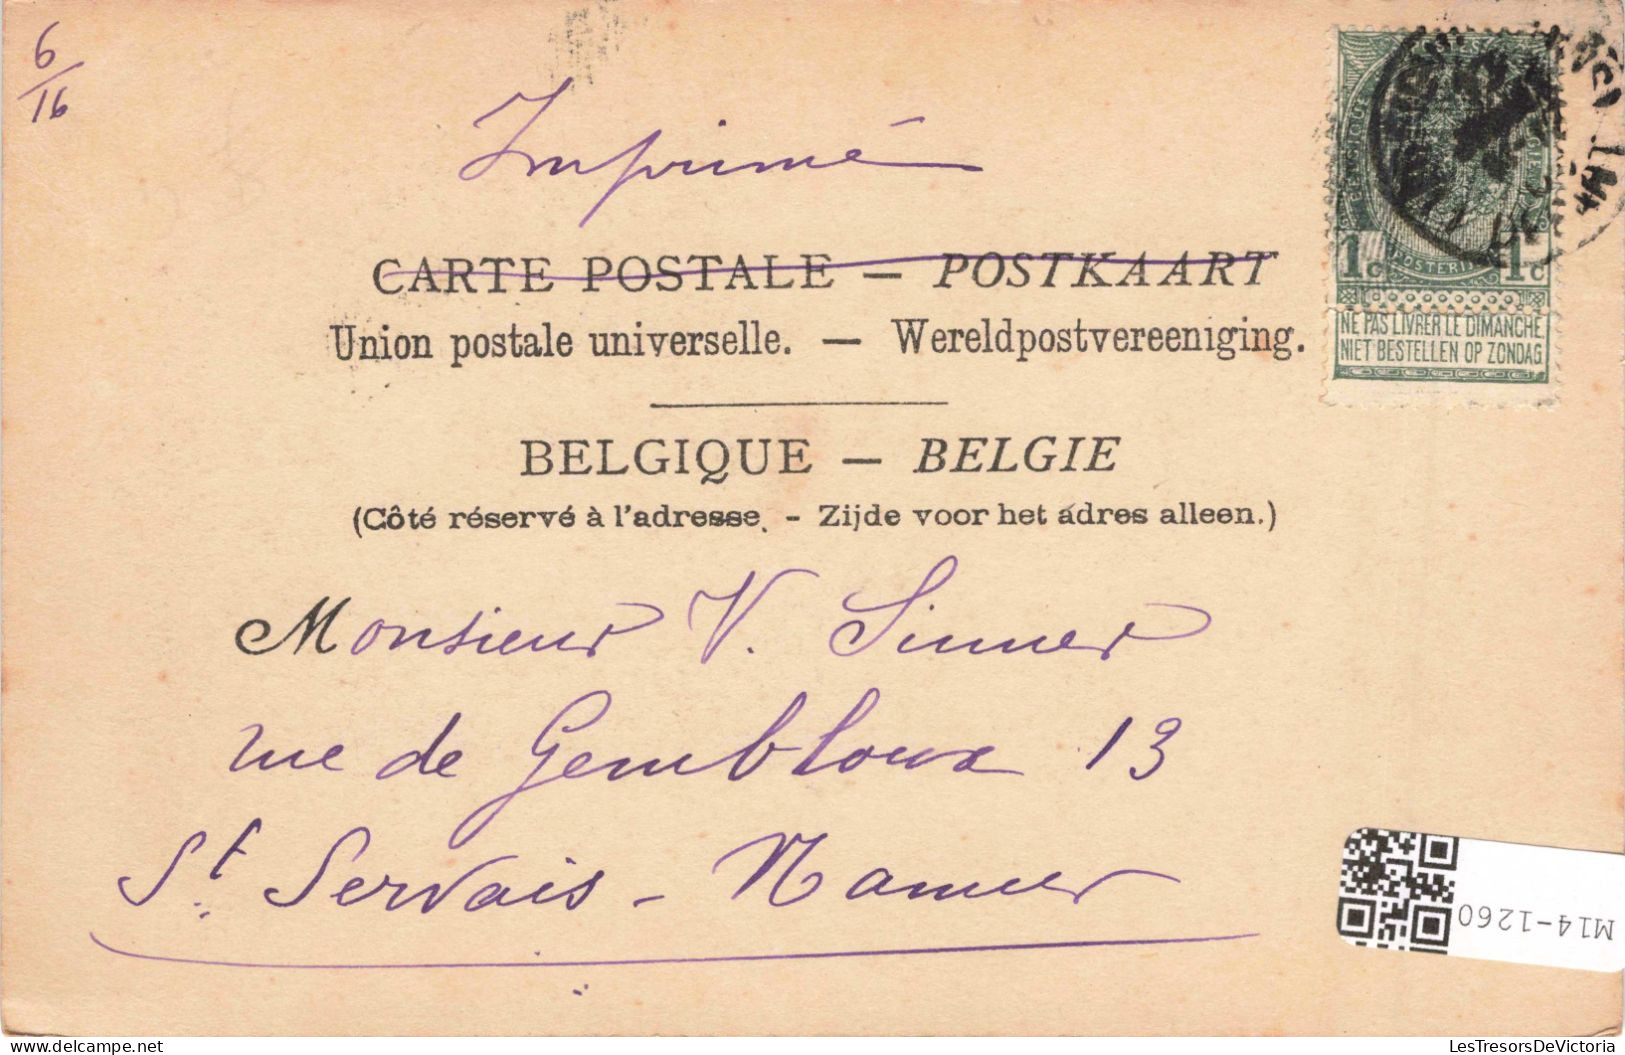 6/16
Imprimé
CARTE POSTALE — POSTKAART
Union postale universelle. — Wereldpostvereeniging.
BELGIQUE — BELGIE
(Côté réservé à l'adresse. - Zijde voor het adres alleen.)
1c 1c
NE PAS LIVRER LE DIMANCHE
NIET BESTELLEN OP ZONDAG
Monsieur V. Sinner
rue de Gembloux 13
St. Servais - Namur
M14-1260
LesTresorsDeVictoria